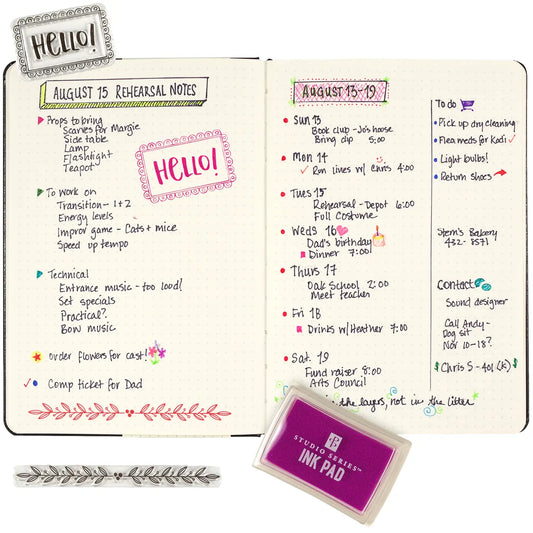 HELLO!
AUGUST 15 REHEARSAL NOTES
Props to bring
Scarves for Margie
Side table
Lamp
Flashlight
Teapot
HELLO!
To work on
Transition - 1 + 2
Energy levels
Improv game - Cats + mice
Speed up tempo
Technical
Entrance music - too loud!
Set specials
Practical?
Bow music
Order flowers for cast!
Comp ticket for Dad
AUGUST 13-19
Sun 13
Book club - Jo's house
Bring dip 5:00
Mon 14
Run lines w/ Chris 4:00
Tues 15
Rehearsal - Depot 6:00
Full Costume
Weds 16
Dad's birthday
Dinner 7:00
Thurs 17
Oak School 2:00
Meet teacher
Fri 18
Drinks w/Heather 7:00
Sat. 19
Fund raiser 8:00
Arts Council
the layers, not in the litter
To do
Pick up dry cleaning
Flea meds for Kodi
Light bulbs!
Return shoes
Stern's Bakery
432-8571
Contact
Sound designer
Call Andy -
Dog sit
Nov 10-18?
$ Chris S - 401 (K) $
STUDIO SERIES™
INK PAD